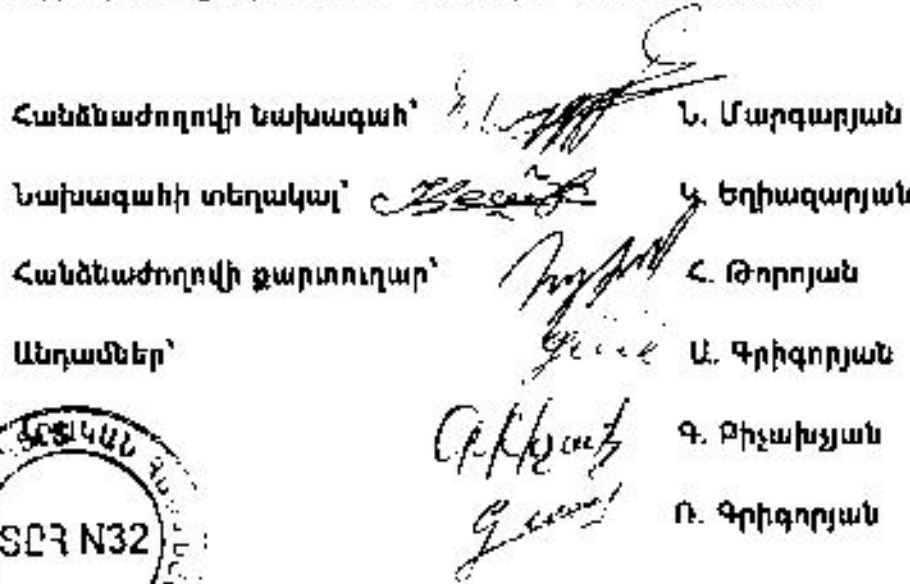 Հանձնաժողովի նախագահ՝ Ն. Մարգարյան
Նախագահի տեղակալ՝ Կ. Եղիազարյան
Հանձնաժողովի քարտուղար՝ Հ. Թորոյան
Անդամներ՝ Ա. Գրիգորյան
Գ. Բիչախչյան
Ռ. Գրիգորյան
ՏԸՀ N32